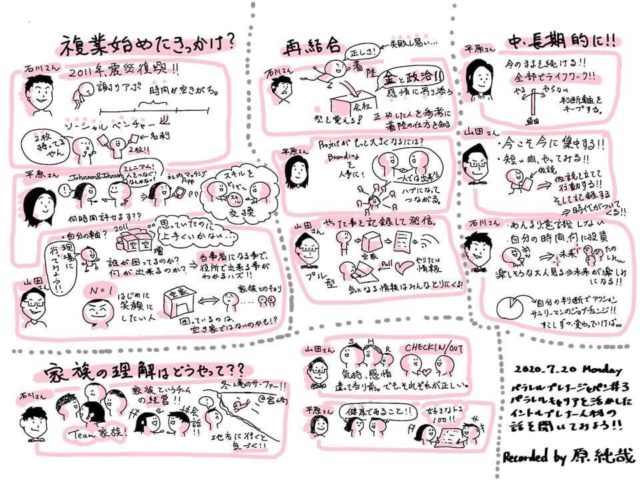 複業始めたきっかけ?
石川さん
2011年震災復興!!
時間が空きがち。
ソーシャルベンチャー
2枚
持ってる
やん
名刺
平原さん
Johnson&Johnson
社内マッチング
App
スキルを
交換
何時間許せる??
自分の軸?
2011
空
現場に
行ってみよう!!
思っていたのに
上手くいかない…
誰が困ってるのか?
何が出来るのか?
当事者になる事で、
役所で出来る事が
わかるハズ!!
山田さん
N=1
はじめに
笑顔に
したい人
空家
家族とのキョリ
困っているのは、
空き家ではないのかも!?
再.結合
石川さん
正しさ!
失敗し易い…
着陸
金と政治!!
感情に寄り添う
会社
型を覚える!
正やした人を参考に
着陸の仕方を知る
平原さん
Projectがもっと大きくなるには?
Brandingを
大事に!
1人では出来ない
ハブになって
つながる。
山田さん
やった事を記録して発信。
プル型
Pull
やりたい
情報
気になる情報はみんなとりにくる!
中・長期的に!!
平原さん
今のままを続ける!!
全部でライフワーク!!
やる
やらない
判断軸を
キープする。
山田さん
・今こそ今に集中する!!
・短い内でやってみる!!
仮説
仮説を立てて
行動する!!
そして記録する
→時代がついて
くる!!
石川さん
・あんまり意識しない
自分の時間、何に投資
未来
楽しそうな大人見る⇒未来が楽しみ
になる!!
自分の判断でアクション
サラリーマンのジョブチェンジ!!
すこしずつ変わっていけば。
家族の理解はどうやって??
石川さん
家族というチーム
の経営!!
会話!!
Team家族!
冬、海のサーファー!!
@宮崎
地方に行くと
気づく!!
山田さん
S
H
R
CHECKIN/OUT
気持、感情
違って当り前。でも、それぞれが正しい。
平原さん
健康であること!!
好きなもの
100!!
2020.7.20 Monday
パラレルプレナージャパン#3
パラレルキャリアを活かした
イントレプレナー人材の
話を聞いてみよう!!
Recorded by 原 純哉